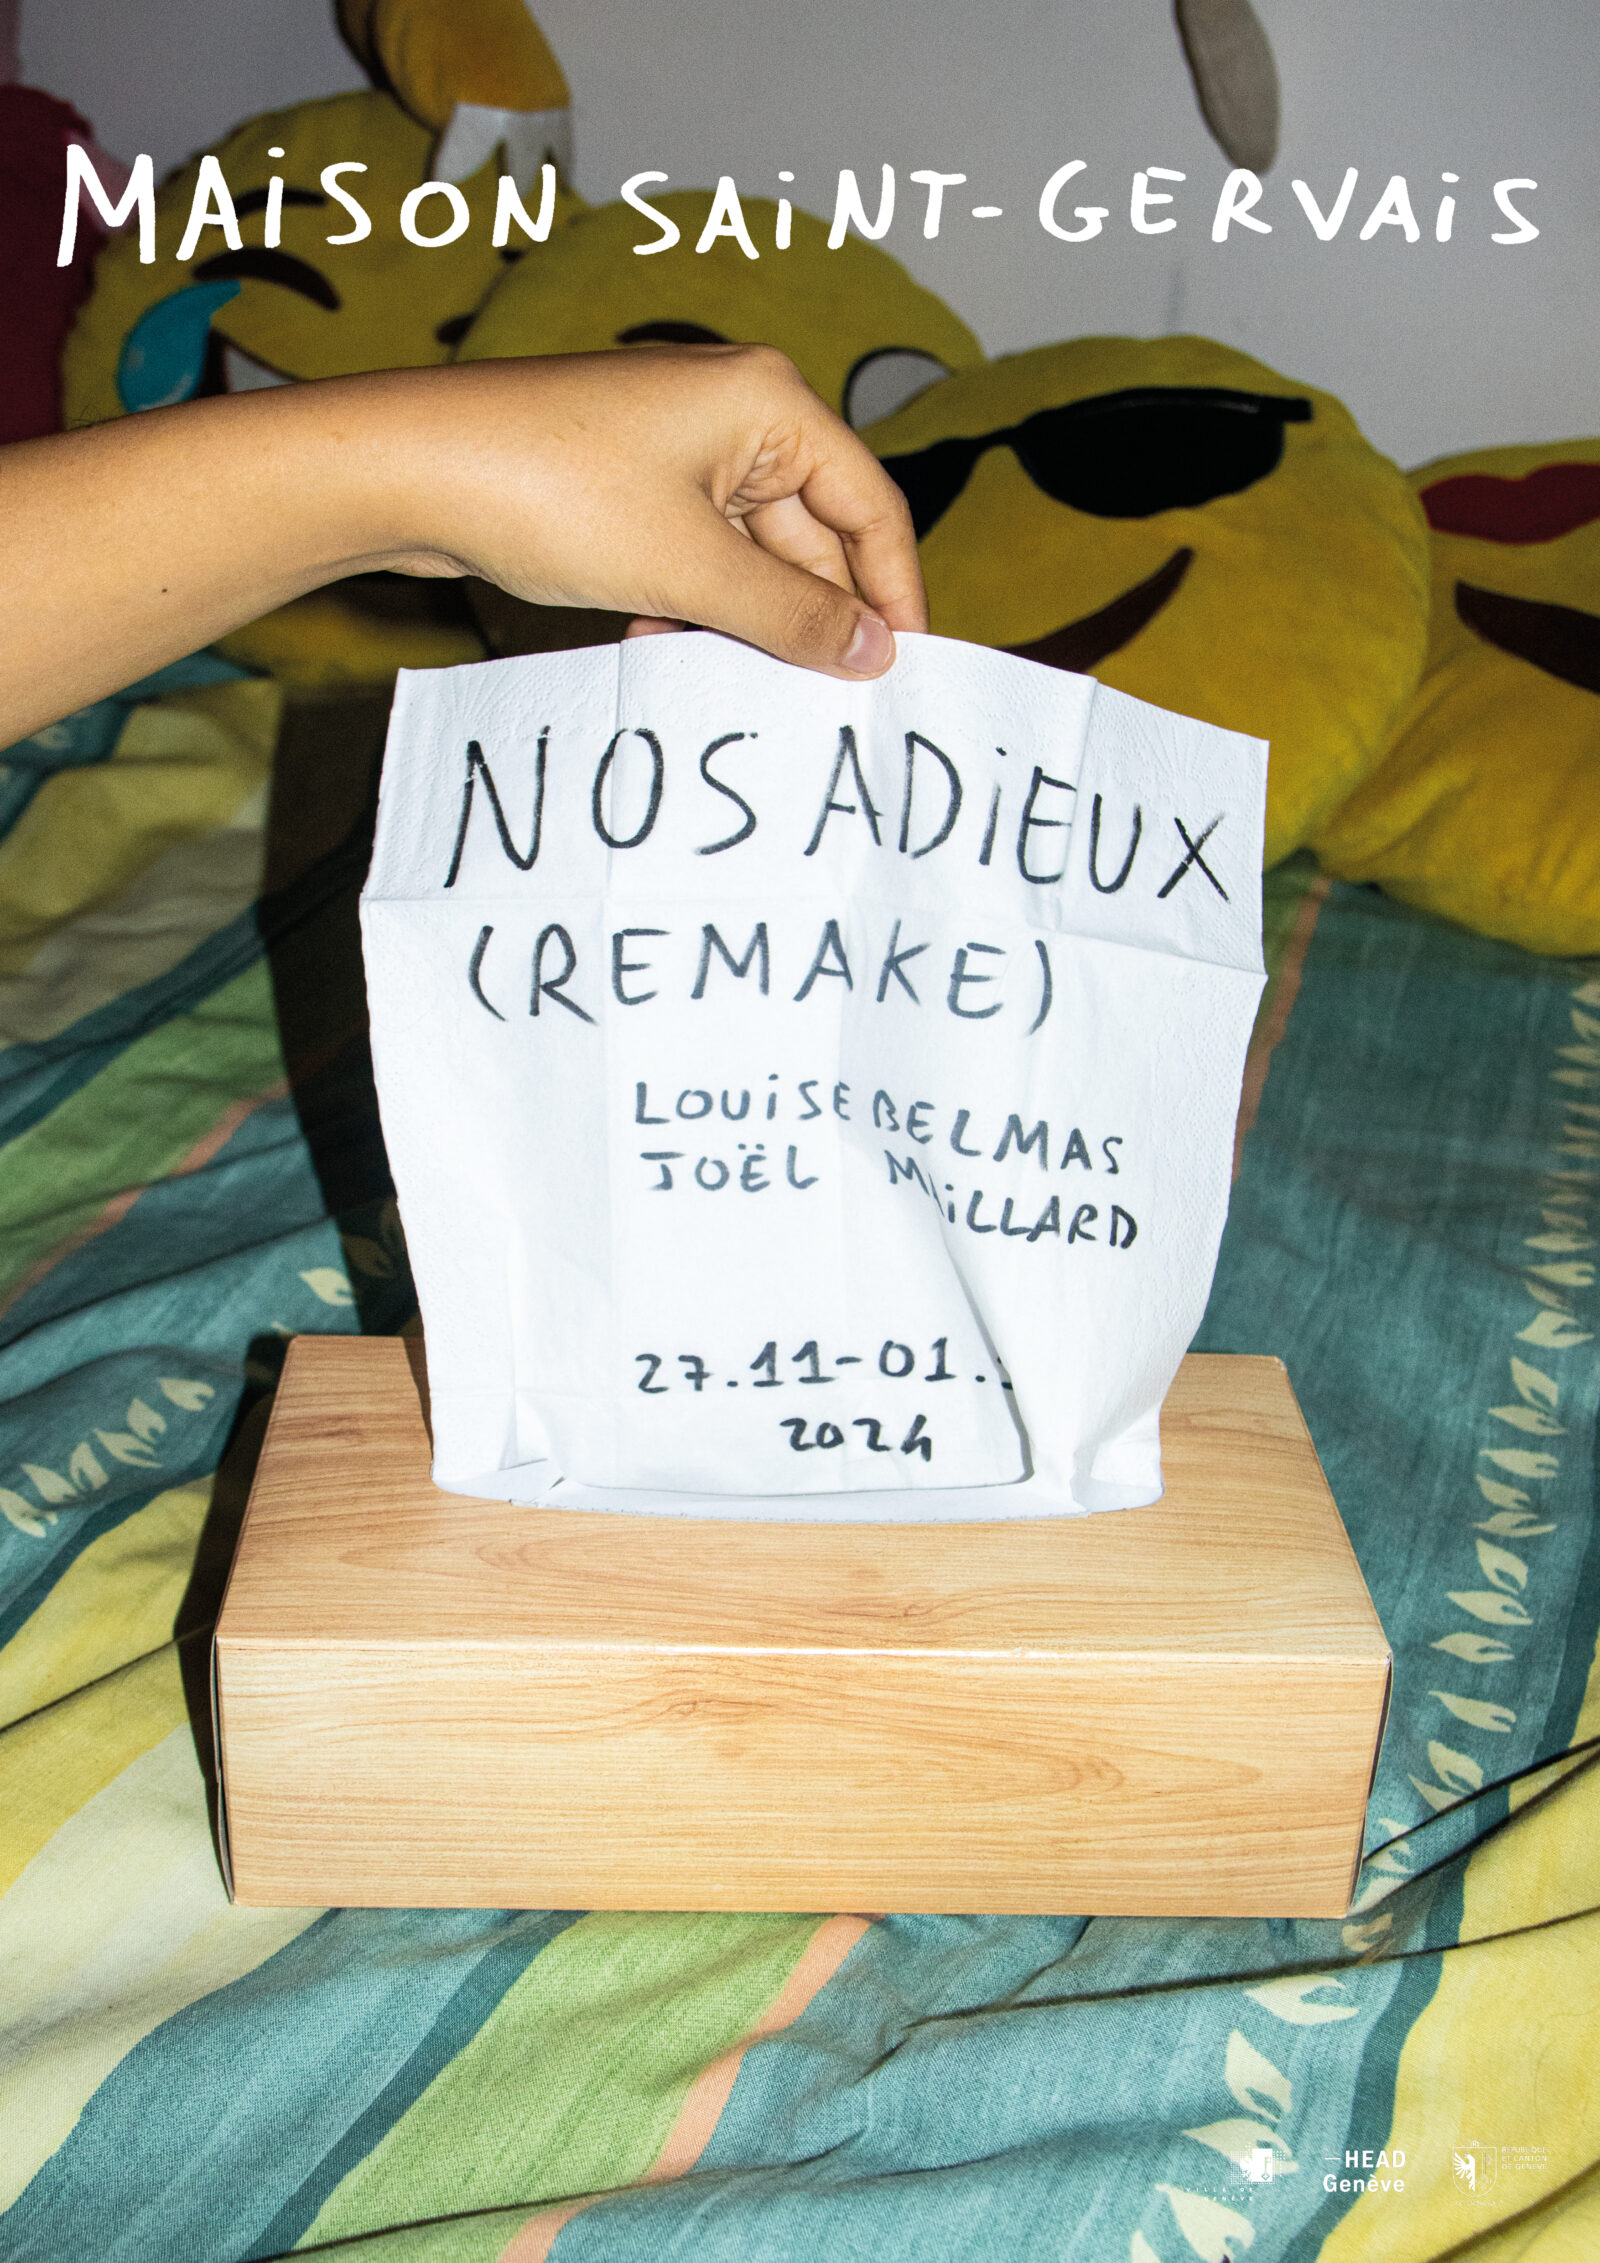 MAiSON SAiNT-GERVAiS
NOS ADiEUX
(REMAKE)
LOUiSE BELMAS
JOËL MAiLLARD
27.11-01.
2024
VILLE DE
GENÈVE
—HEAD
Genève
RÉPUBLIQUE
ET CANTON
DE GENÈVE